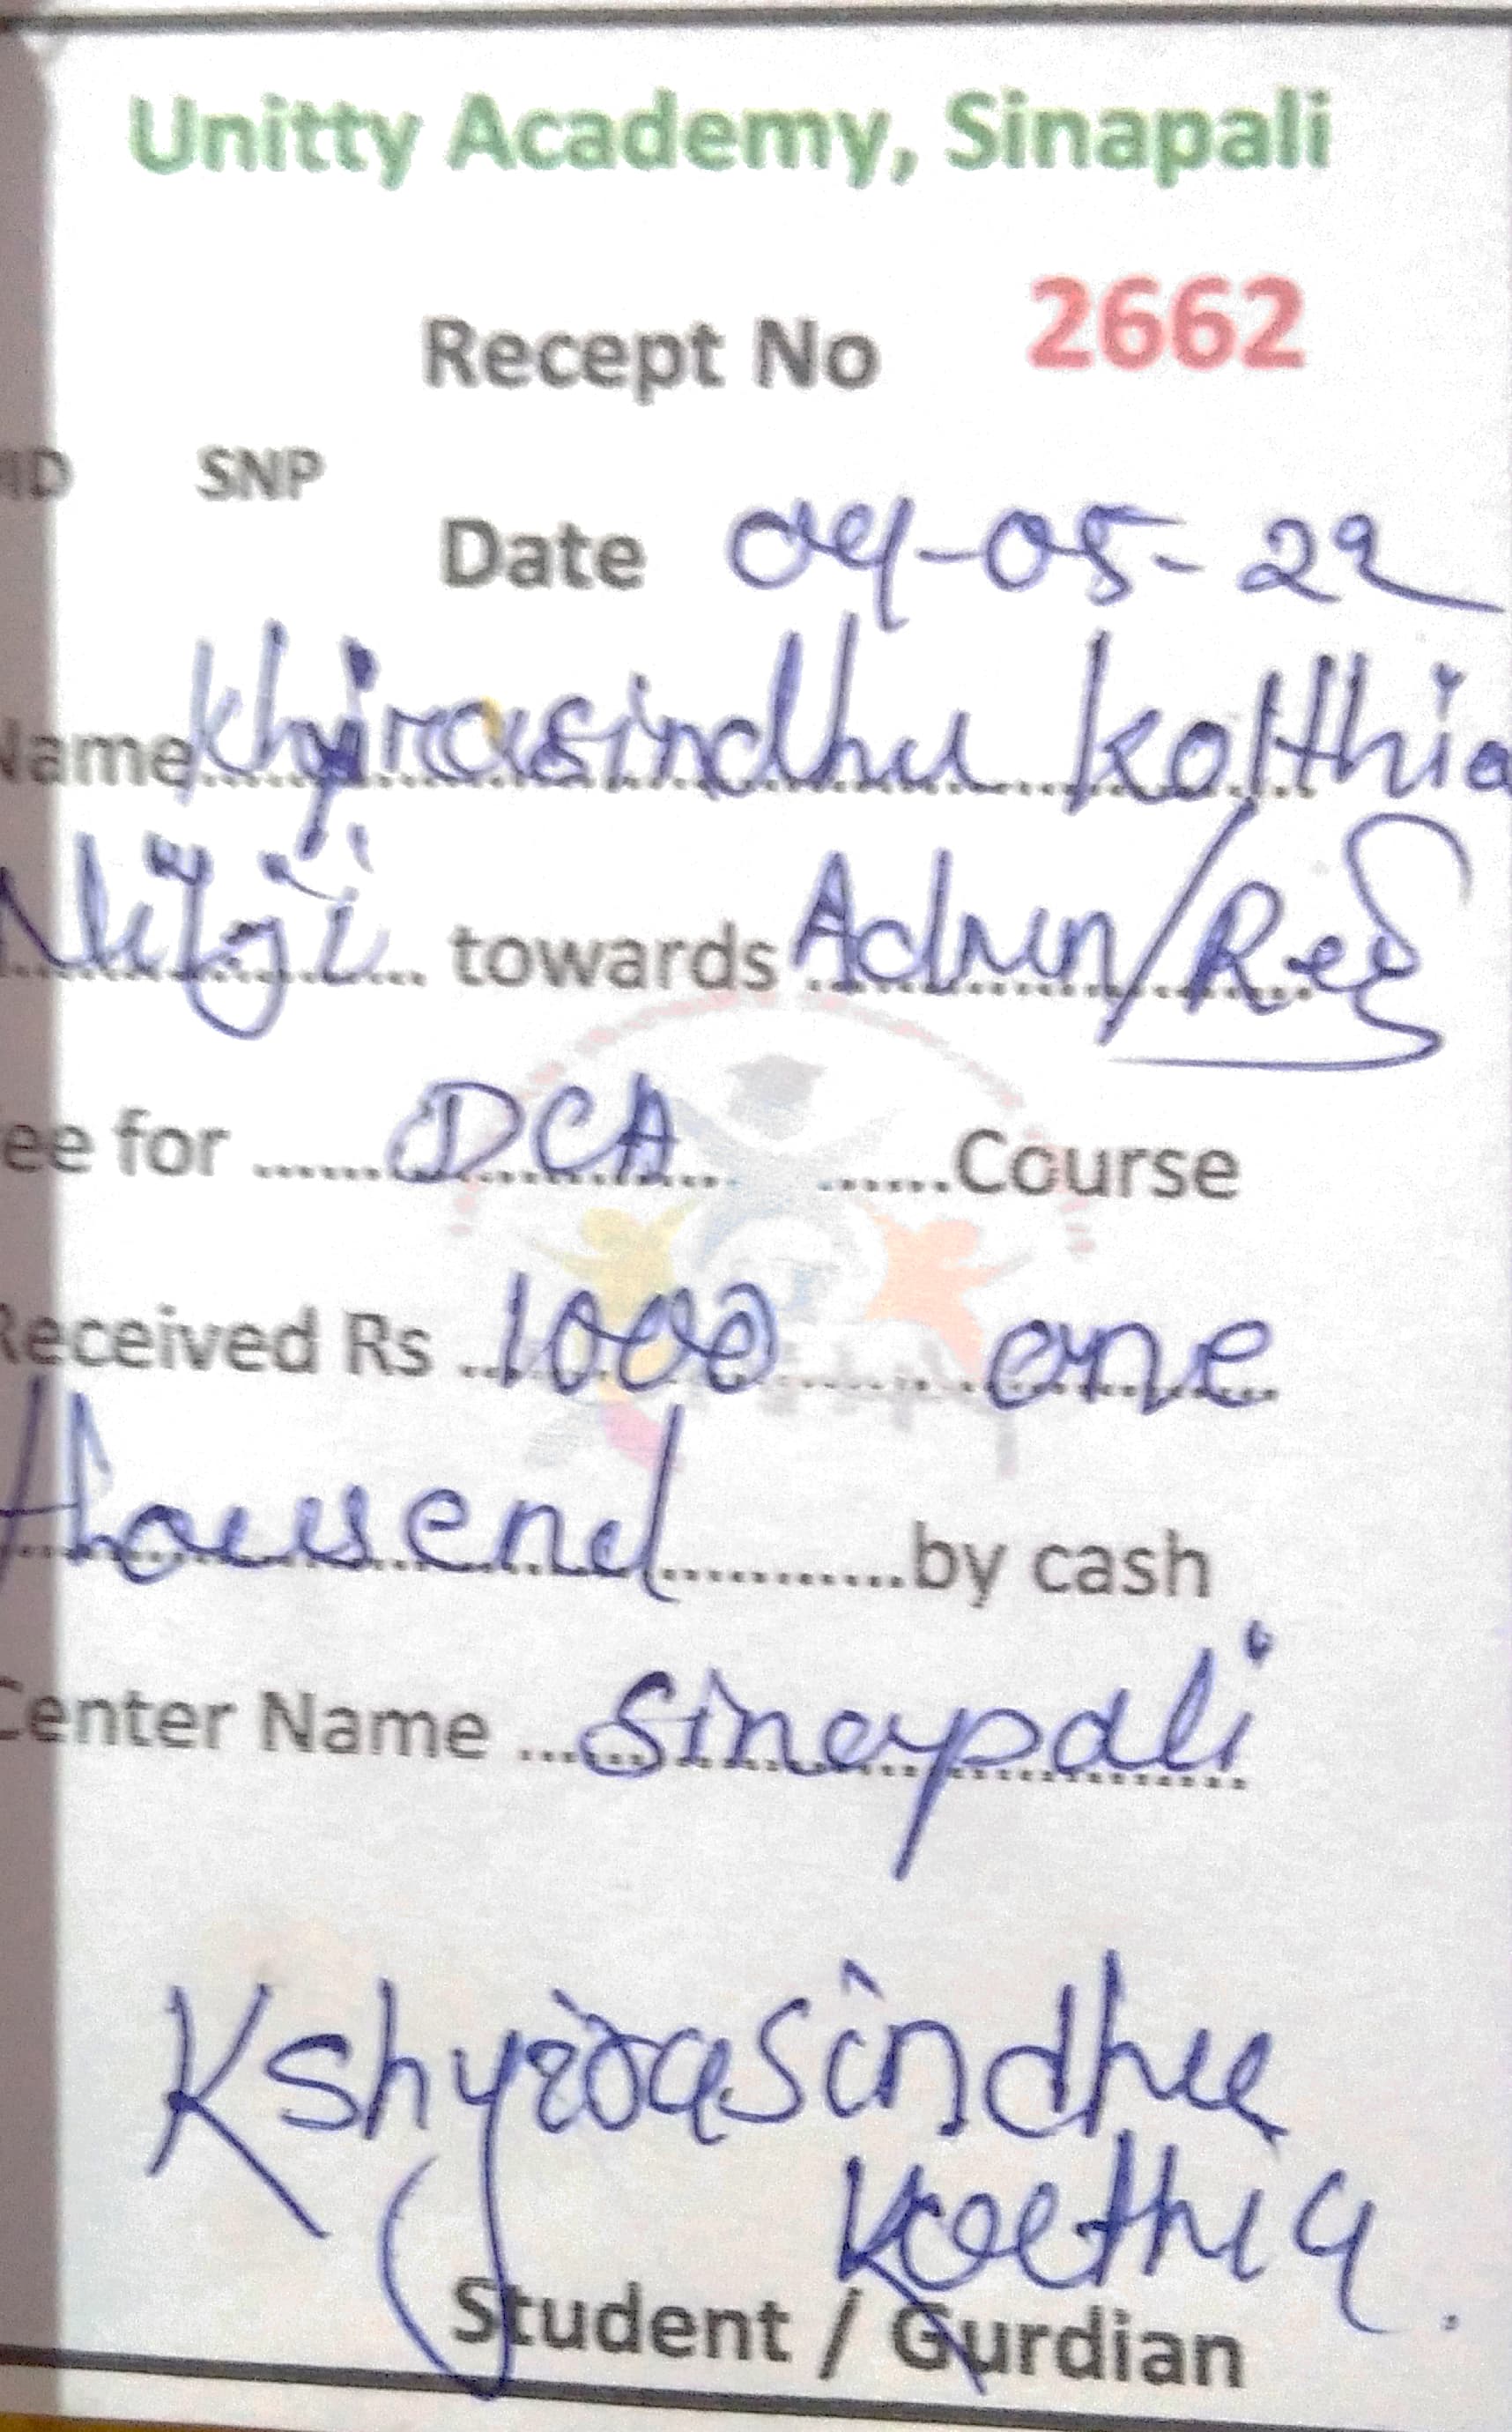 Unitty Academy, Sinapali
Recept No 2662
ID SNP
Date 04-05-22
Name Khirasindhu Kolthia
towards Admn/Reg
ee for DCA Course
Received Rs 1000 one
thousend by cash
Center Name Sinapali
Kshyirasindhu
Koethia.
Student / Gurdian